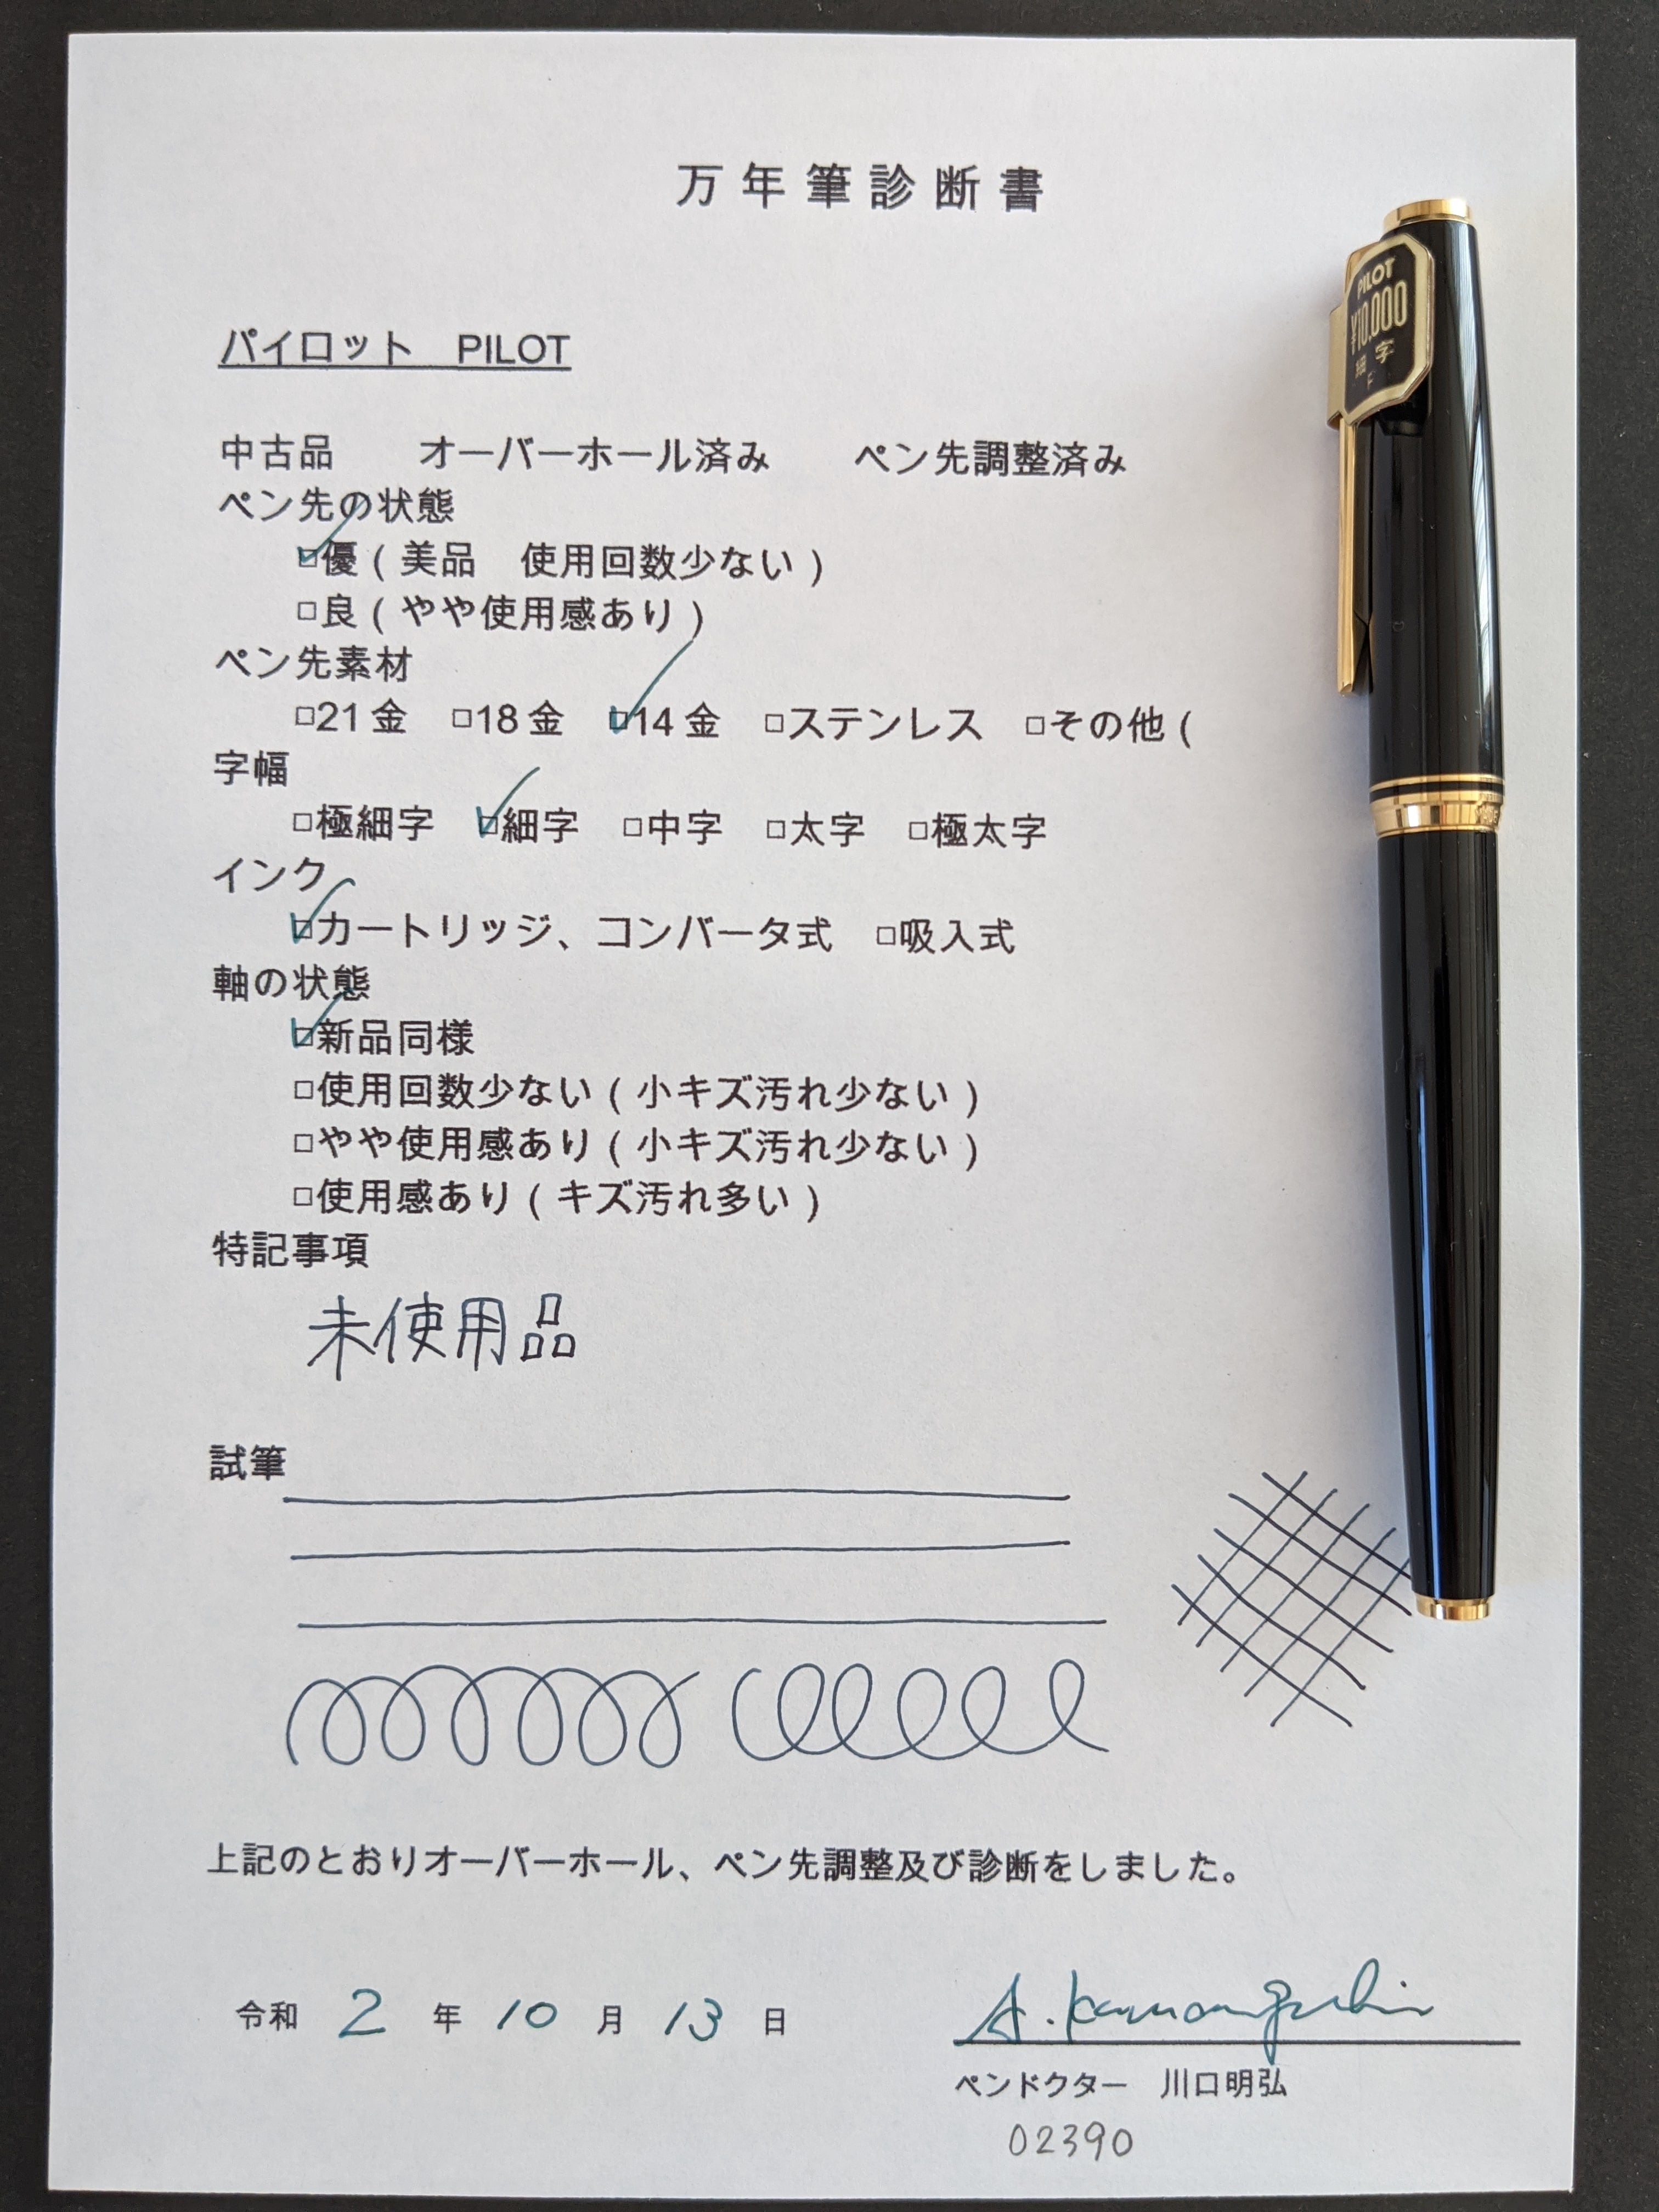 万年筆診断書
パイロット　PILOT
中古品　　オーバーホール済み　　ペン先調整済み
ペン先の状態
☑優(美品　使用回数少ない)
□良(やや使用感あり)
ペン先素材
□21金　□18金　☑14金　□ステンレス　□その他(
字幅
□極細字　☑細字　□中字　□太字　□極太字
インク
☑カートリッジ、コンバータ式　□吸入式
軸の状態
☑新品同様
□使用回数少ない(小キズ汚れ少ない)
□やや使用感あり(小キズ汚れ少ない)
□使用感あり(キズ汚れ多い)
特記事項
未使用品
試筆
上記のとおりオーバーホール、ペン先調整及び診断をしました。
令和 2 年 10 月 13 日
A. Kawaguchi
ペンドクター　川口明弘
02390
PILOT
¥10,000
細字
F